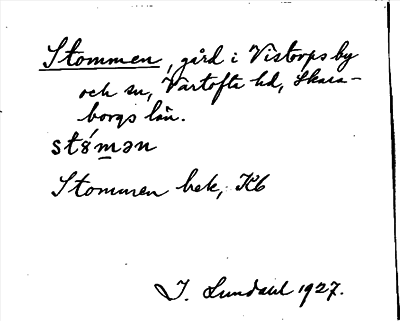 Stommen, gård i Vistorps by
och sn, Vartofta hd, Skara-
borgs län.
stɞ́mən
Stommen bek, Kb
I. Lundahl 1927.